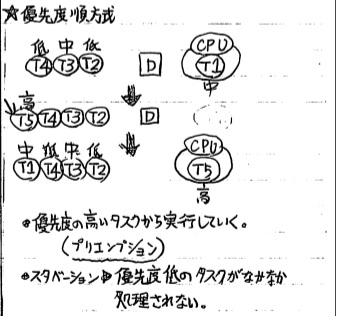 ☆優先度順方式
低 中 低
T4 T3 T2 D CPU T1
中
高
T5 T4 T3 T2 D
中 低 中 低
T1 T4 T3 T2 CPU T5
高
◎優先度の高いタスクから実行していく。
(プリエンプション)
◎スタベーション⇒優先度低のタスクがなかなか
処理されない。